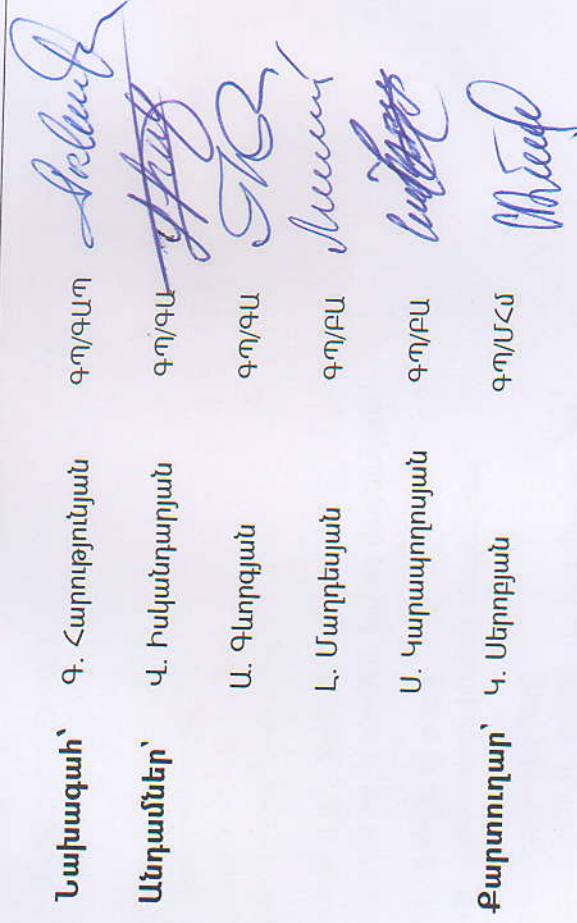 Նախագահ՝ Գ. Հարությունյան ԳՊ/ԳԱՊ
Անդամներ՝ Վ. Իսկանդարյան ԳՊ/ԳԱ
Ա. Գևորգյան ԳՊ/ԳԱ
Լ. Մաղդեսյան ԳՊ/ԲԱ
Ս. Կարապողոսյան ԳՊ/ԲԱ
Քարտուղար՝ Կ. Սերոբյան ԳՊ/ՄՀՄ